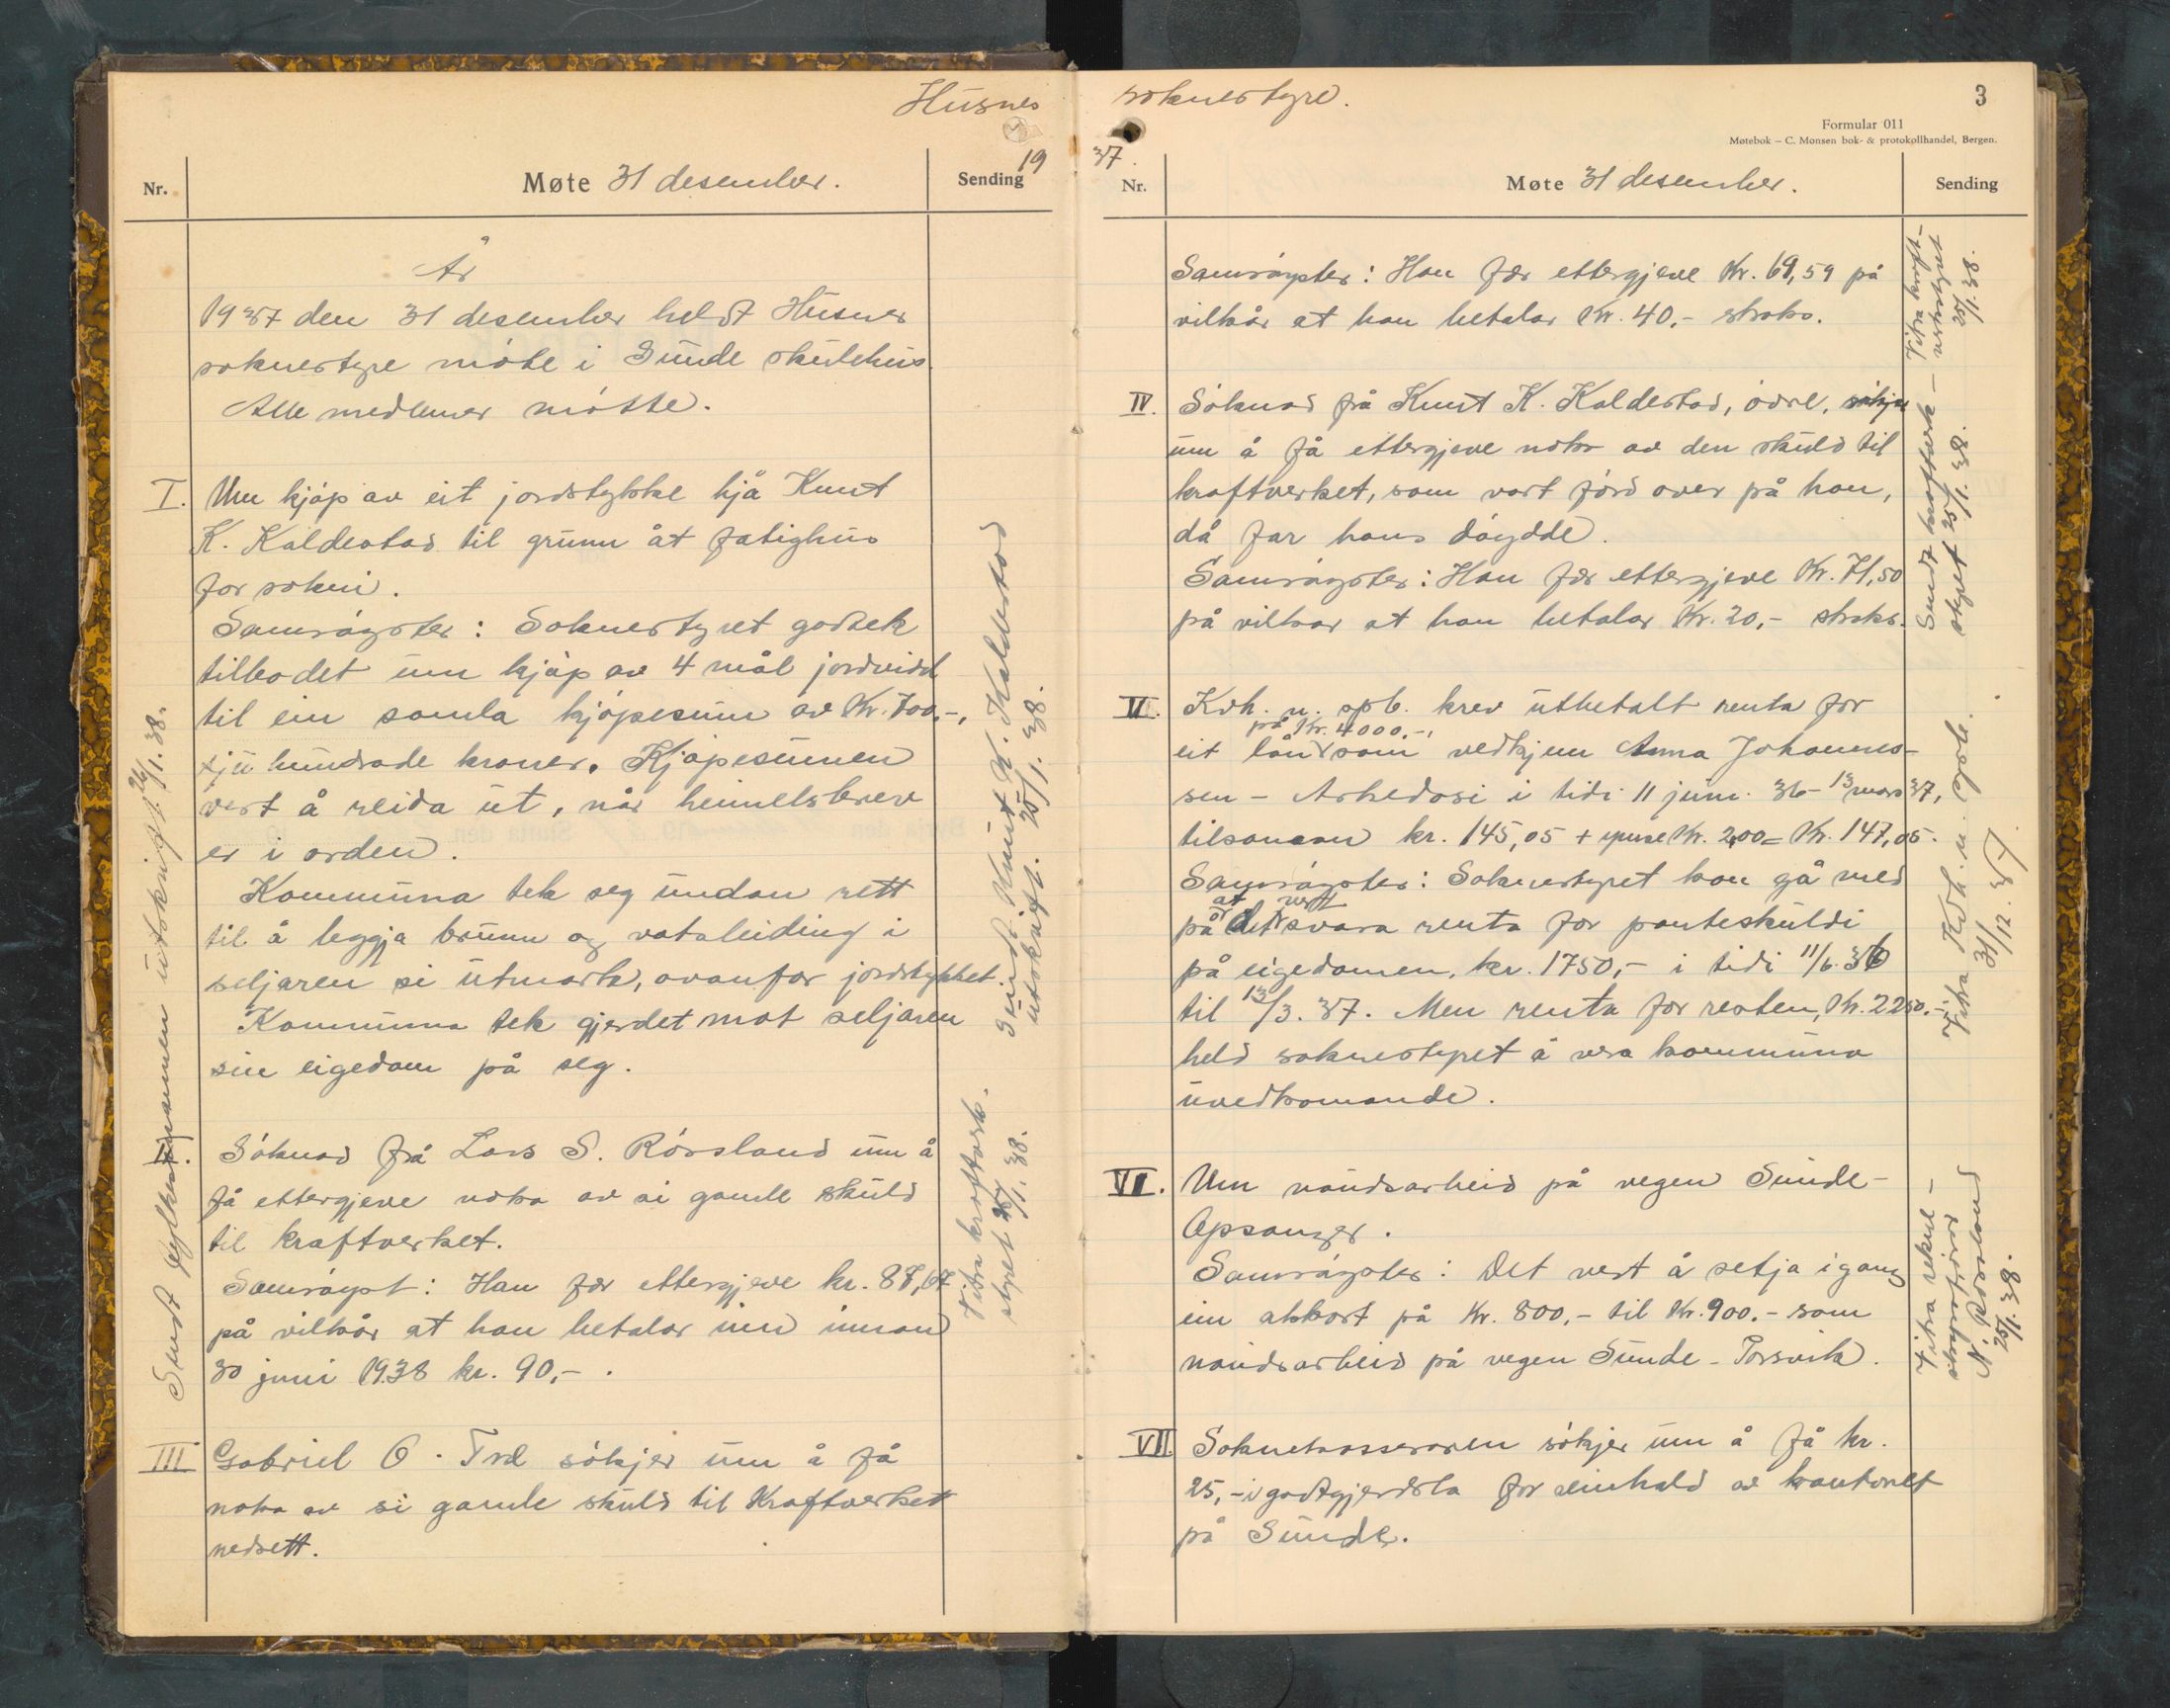 Husnes
19
Nr.
Møte 31 desember.
Sending
År
1937 den 31 desember heldt Husnes
soknestyre møte i Sunde skulehus.
Alle medlemer møtte.
I. Um kjøp av eit jordstykke hjå Knut
K. Kaldestad til grunn åt fatighus
for sokni.
Samrøystes: Soknestyret godtek
tilbodet um kjøp av 4 mål jordvidd
til ein samla kjøpesum av Kr. 700,-,
sju hundrade kroner. Kjøpesummen
vert å reida ut, når heimelsbrev
er i orden.
Kommuna tek seg undan rett
til å leggja brunn og vatsleiding i
seljaren si utmark, ovanfor jordstykket.
Kommuna tek gjerdet mot seljaren
sin eigedom på seg.
Sendt Knut K. Kaldestad
utskrift. 25/1. 38.
Sendt fylkesmannen utskrift 26/1. 38.
II. Søknad frå Lars S. Røssland um å
få ettergjeve noko av si gamle skuld
til kraftverket.
Samrøyst: Han får ettergjeve kr. 88,67
på vilkår at han betalar inn innan
30 juni 1938 kr. 90,- .
Vitra kraftverk-
styret 25/1. 38.
III Gabriel O. Tvd søkjer um å få
noko av si gamle skuld til Kraftverket
nedsett.
soknestyre.
3
Formular 011
Møtebok – C. Monsen bok- & protokollhandel, Bergen.
37.
Nr.
Møte 31 desember.
Sending
Samrøystes: Han får ettergjeve Kr. 69,59 på
vilkår at han betalar Kr. 40,- straks.
Vitra kraft-
verkstyret
25/1. 38.
IV. Søknad frå Knut K. Kaldestad, øvre, søkje
um å få ettergjeve noko av den skuld til
kraftverket, som vart førd over på han,
då far hans døydde.
Samrøystes: Han får ettergjeve Kr. 71,50
på vilkår at han betalar Kr. 20,- straks.
Sendt kraftverk-
styret 25/1. 38.
V. Kvh. u. spb. krev utbetalt renta for
på Kr. 4000.-,
eit lån som vedkjem Anna Johannes-
sen - Askedosi i tidi 11 juni 36 - 13 mars 37,
tilsaman kr. 145,05 + Kr. 2,00 = Kr. 147,05.
Samrøystes: Soknestyret kan gå med
at vert
på det svara renta for panteskuldi
på eigedomen, kr. 1750,- i tidi 11/6. 36
til 13/3. 37. Men renta for resten, Kr. 2250.-,
held soknestyret å vera kommuna
uvedkomande.
Vitra Kvh. u. spb.
31/12. 37.
VI. Um naudsarbeid på vegen Sunde-
Opsanger.
Samrøystes: Det vert å setja igang
ein akkort på Kr. 800,- til Kr. 900.- som
naudsarbeid på vegen Sunde - Porsvik.
N. Røssland
25/1. 38.
VII Soknekasseraren søkjer um å få kr.
25,- i godtgjerdsla for reinhald av kontoret
på Sunde.